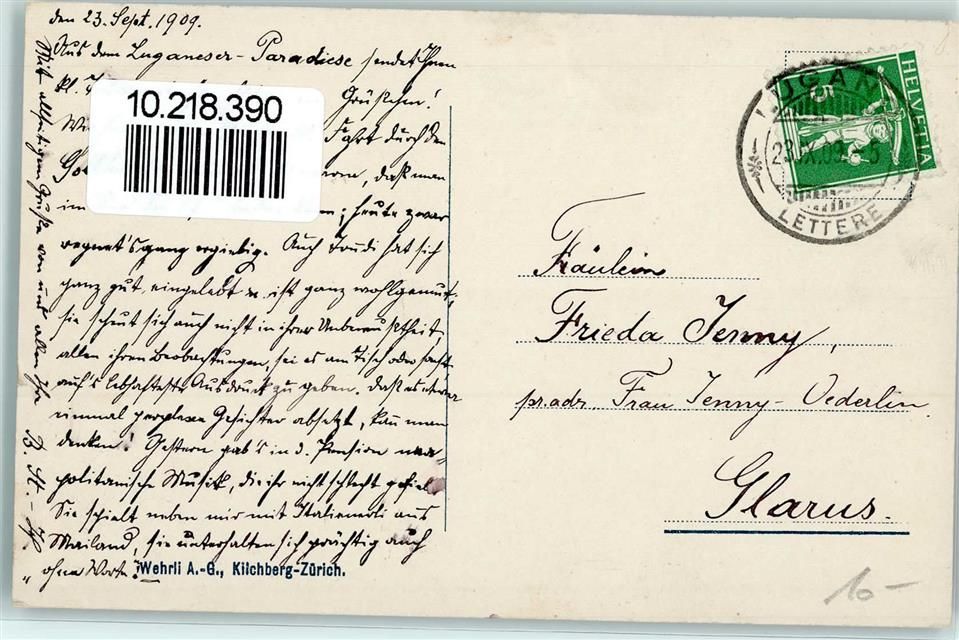 den 23. Sept. 1909.
Aus dem Luganeser-Paradiese sendet Ihnen
kl. Grüßchen!
Fahrt durch den
daß man
im heute zwar
regnet's ganz ergiebig. Auch Trudi hat sich
ganz gut eingelebt u. ist ganz wohlgemut,
sie scheut sich auch nicht in ihrer Unbewußtheit,
allen ihren Beobachtungen, sei es am Tisch oder sonst
auf's lebhafteste Ausdruck zu geben. Daß es
einmal perplexe Gesichter absetzt, kann man
denken! Gestern gab's in d. Pension nea-
politanische Musik, die ihr nicht schlecht gefiel.
Sie spielt neben mir mit Italienerli aus
Mailand, sie unterhalten sich prächtig auch
"ohne Worte".
Mit allseitigen Grüßen von uns allen Ihre
B. St.-
10.218.390
Wehrli A.-G., Kilchberg-Zürich.
HELVETIA
5
LUGANO
23.IX.09.-5
LETTERE
Fräulein
Frieda Jenny,
pr. adr. Frau Jenny-Oederlin.
Glarus.
10-